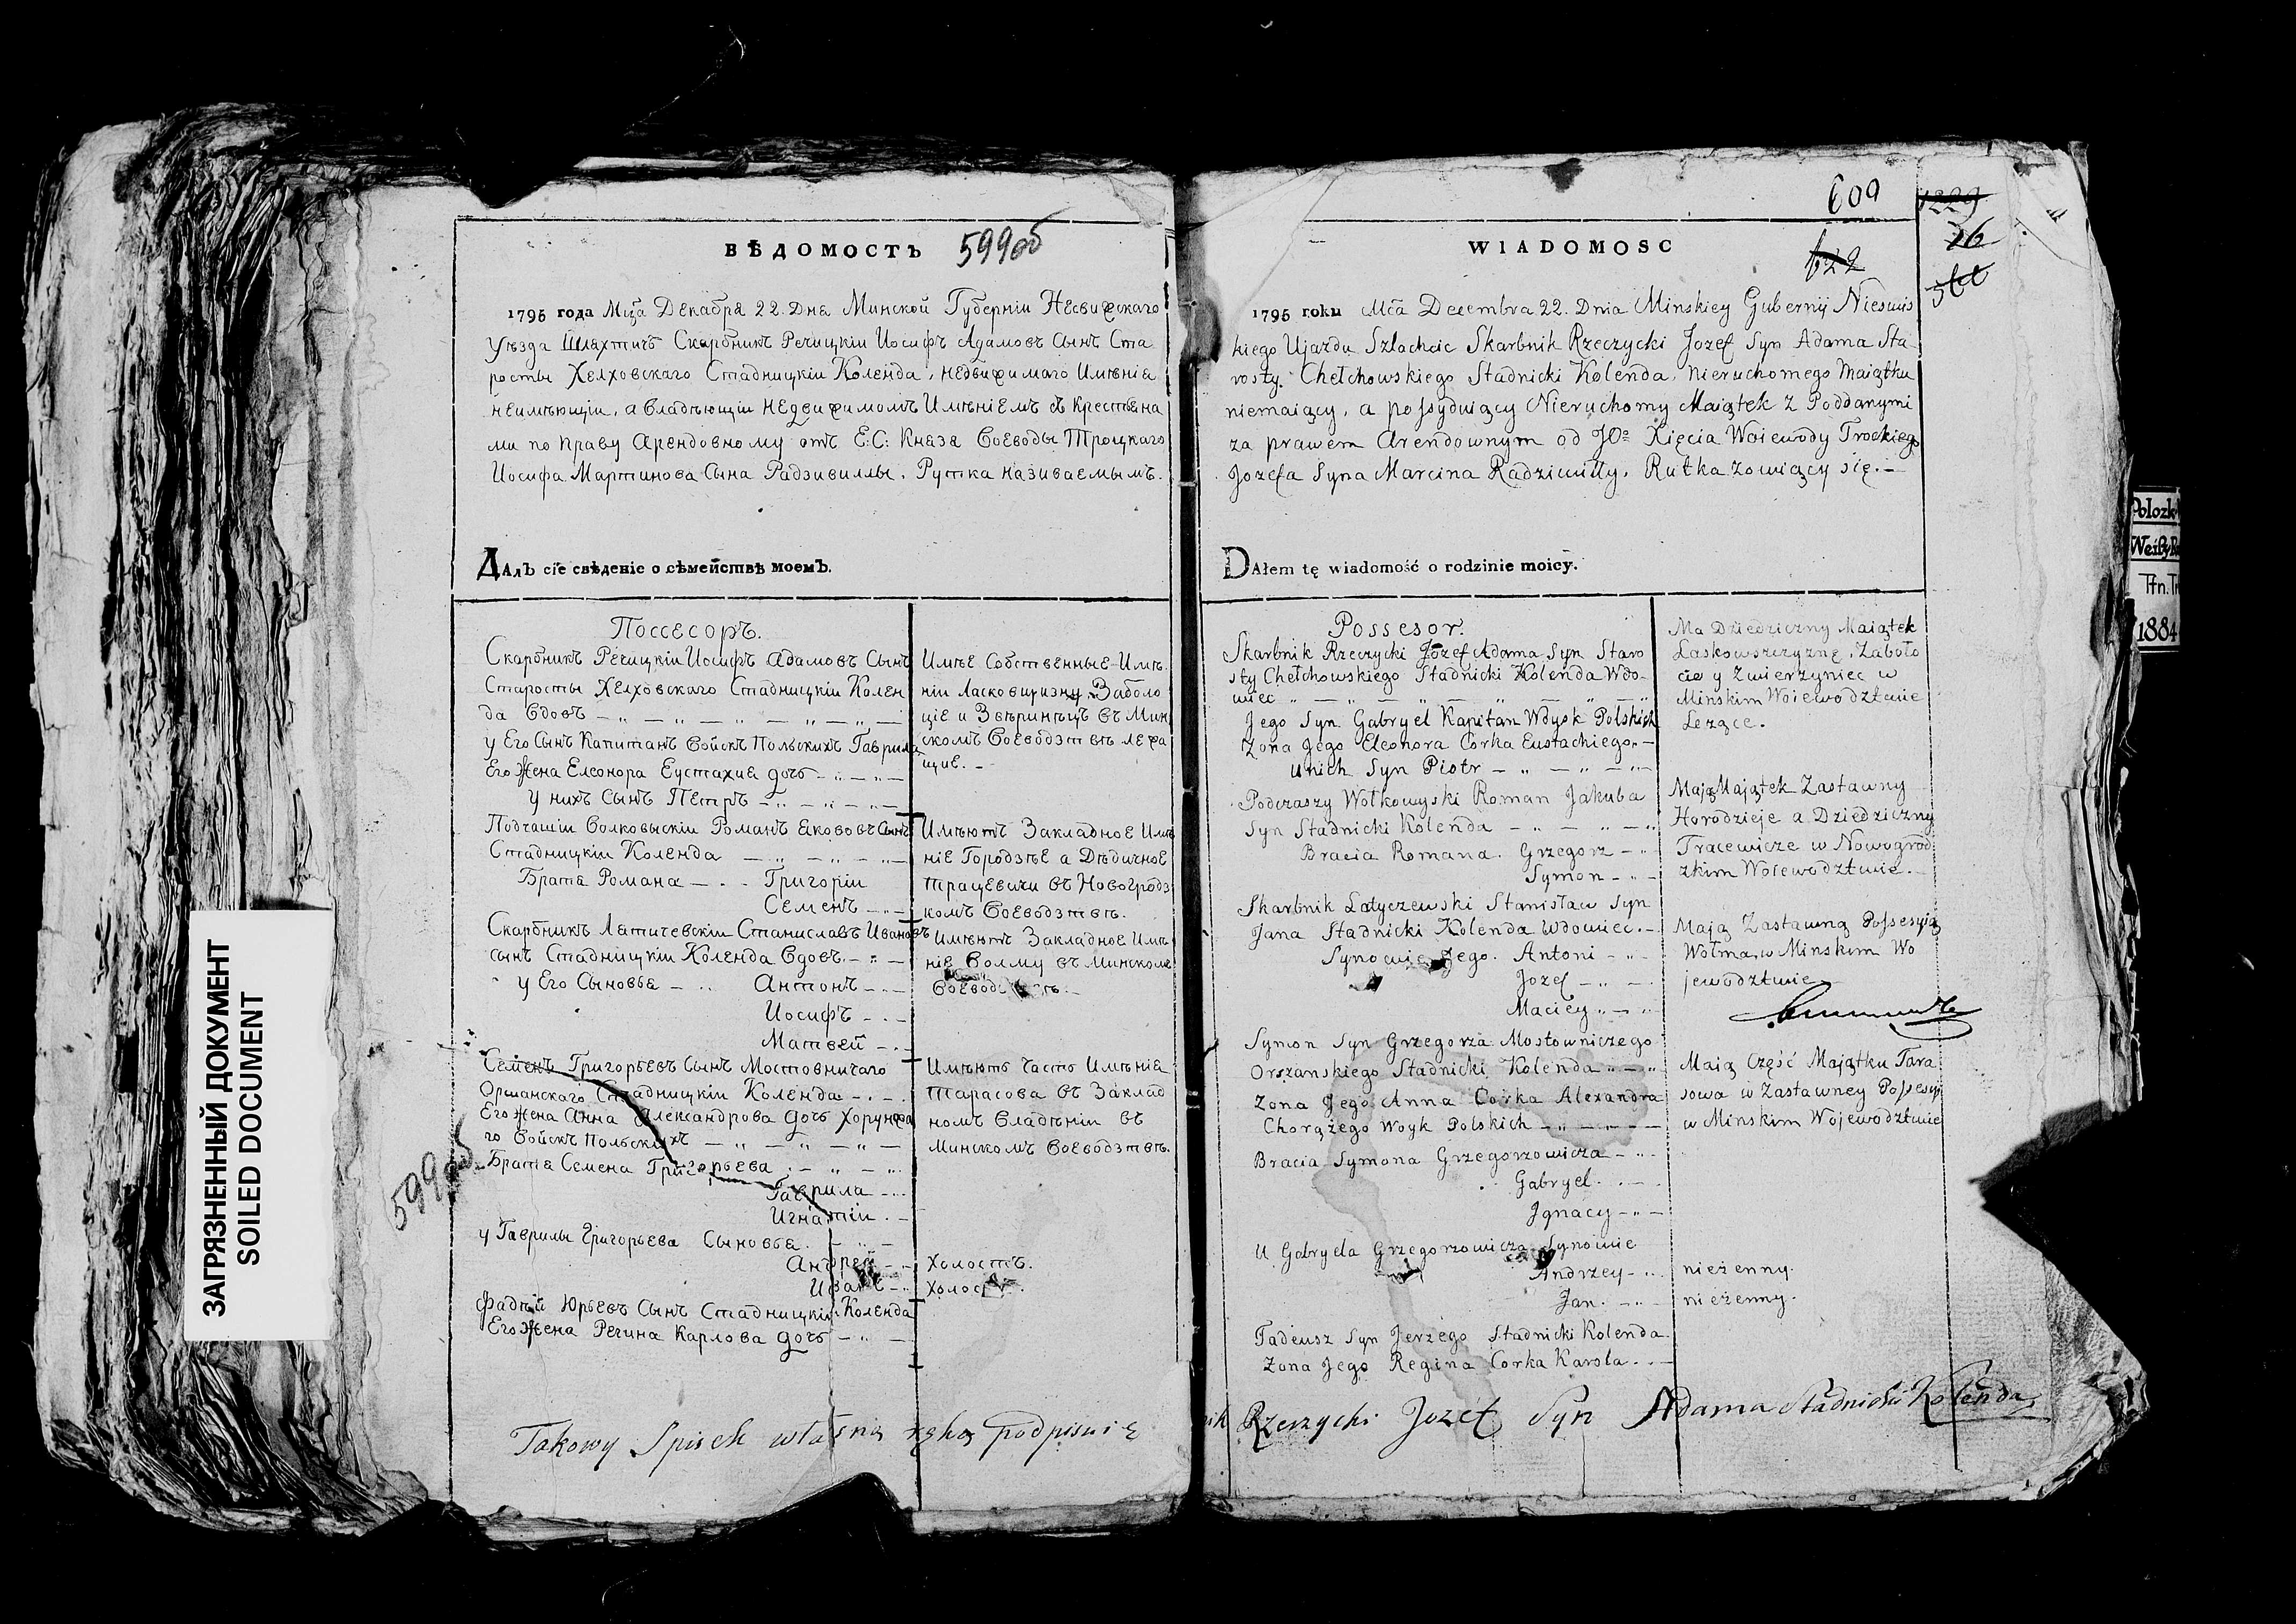 ВѢДОМОСТЬ 599об
1795 года Мца Декабря 22. Дня Минской Губерніи Несвижскаго
Уѣзда Шляхтичъ Скарбникъ Речицкіи Иосифъ Адамовъ Сынъ Ста
росты Хелховскаго Стадницкіи Коленда, недвижимаго Имѣнія
неимѣющіи, а владѣющіи недвижимомъ Имѣніемъ съ Крестьяна
ми по праву Арендовному отъ Е:С: Князя Воеводы Троцкаго
Иосифа Мартинова Сына Радзивиллы, Рутка називаемымъ.
Далъ сіе свѣденіе о сѣмействѣ моемъ.
Поссесоръ.
Скарбникъ Речицкіи Иосифъ Адамовъ Сынъ
Старосты Хелховскаго Стадницкіи Колен
да Вдовъ
у Его Сынъ Капитанъ Войскъ Польскихъ Гаврила
Его Жена Елеонора Еустахия дочь
у нихъ Сынъ Петръ
Подчашіи Волковыскіи Романъ Якововъ Сынъ
Стадницкіи Коленда
Братя Романа Григоріи
Семенъ
Скарбникъ Латичевскіи Станиславъ Ивановъ
сынъ Стадницкіи Коленда Вдовъ
у Его Сыновья Антонъ
Иосифъ
Матвей
Семенъ Григорьевъ Сынъ Мостовничаго
Оршанскаго Стадницкіи Коленда
Его Жена Анна Александрова дочь Хорунжа
го Войскъ Польскихъ
Братя Семена Григорьева
Гаврила
Игнатіи
у Гаврилы Григорьева Сыновья
Андрей
Иванъ
Фадѣй Юрьевъ Сынъ Стадницкіи Коленда
Его Жена Регина Карлова дочь
Имѣе Собственные Имѣ
ніи Ласковщизну, Заболо
ціе и Звѣринѣцъ въ Мин
скомъ Воеводзтвѣ лежа
щие.
Имѣютъ Закладное Имѣ
ніе Городзѣе а Дѣдичное
Трацевичи въ Новогродз
комъ Воеводзтвѣ.
Имѣютъ Закладное Имѣ
ніе Волму въ Минскомъ
Имѣютъ Часть Имѣнія
Тарасова въ Заклад
номъ Владѣніи въ
Минскомъ Воеводзтвѣ.
Холостъ.
Холостъ.
Takowy Spisek własną ręką podpisuię
599об
ЗАГРЯЗНЕННЫЙ ДОКУМЕНТ
SOILED DOCUMENT
609
1229
WIADOMOSC
622
36
566
1795 roku Mca Decembra 22. Dnia Minskiey Gubernij Nieswis
kiego Ujazdu Szlachcic Skarbnik Rzeczycki Jozef Syn Adama Sta
rosty Chełchowskiego Stadnicki Kolenda, Nieruchomego Maiątku
niemaiący, a possyduiący Nieruchomy Maiątek z Poddanymi
za prawem Arendownym od JO: Xięcia Woiewody Trockiego
Jozefa Syna Marcina Radziwiłły, Rutka zowiący się.
Dałem tę wiadomość o rodzinie moicy.
Possesor.
Skarbnik Rzeczycki Jozef Adama Syn Staro
sty Chełchowskiego Stadnicki Kolenda Wdo
wiec
Jego Syn Gabryel Kapitan Woysk Polskich
Zona Jego Eleonora Corka Eustachiego
unich Syn Piotr
Podczaszy Wołkowyski Roman Jakuba
Syn Stadnicki Kolenda
Bracia Romana. Grzegorz
Symon
Skarbnik Latyczewski Stanisław Syn
Jana Stadnicki Kolenda Wdowiec.
Synowie Jego. Antoni
Jozef
Maciey
Symon Syn Grzegorza Mostowniczego
Orszanskiego Stadnicki Kolenda
Zona Jego Anna Corka Alexandra
Chorążego Woyk Polskich
Bracia Symona Grzegorzowicza
Gabryel.
Jgnacy
U Gabryela Grzegorzowicza Synowie
Andrzey
Jan.
Tadeusz Syn Jerzego Stadnicki Kolenda
Zona Jego Regina Corka Karola
Ma Dziedziczny Maiątek
Laskowszczyznę, Zaboło
cie y Zwierzyniec w
Minskim Woiewodztwie
Leżące.
Mają Majątek Zastawny
Horodzieje a Dziedziczny
Tracewicze w Nowogrod
zkim Wolewodztwie.
Mają Zastawną Possesyią
Wołma w Minskim Wo
jewodztwie
Maią Część Majątku Tara
sowa w Zastawney Possesyi
w Minskim Wojewodztwie
nieżenny.
nieżenny.
Rzeczycki Jozef Syn Adama Stadnicki Kolenda
Polozk
1884